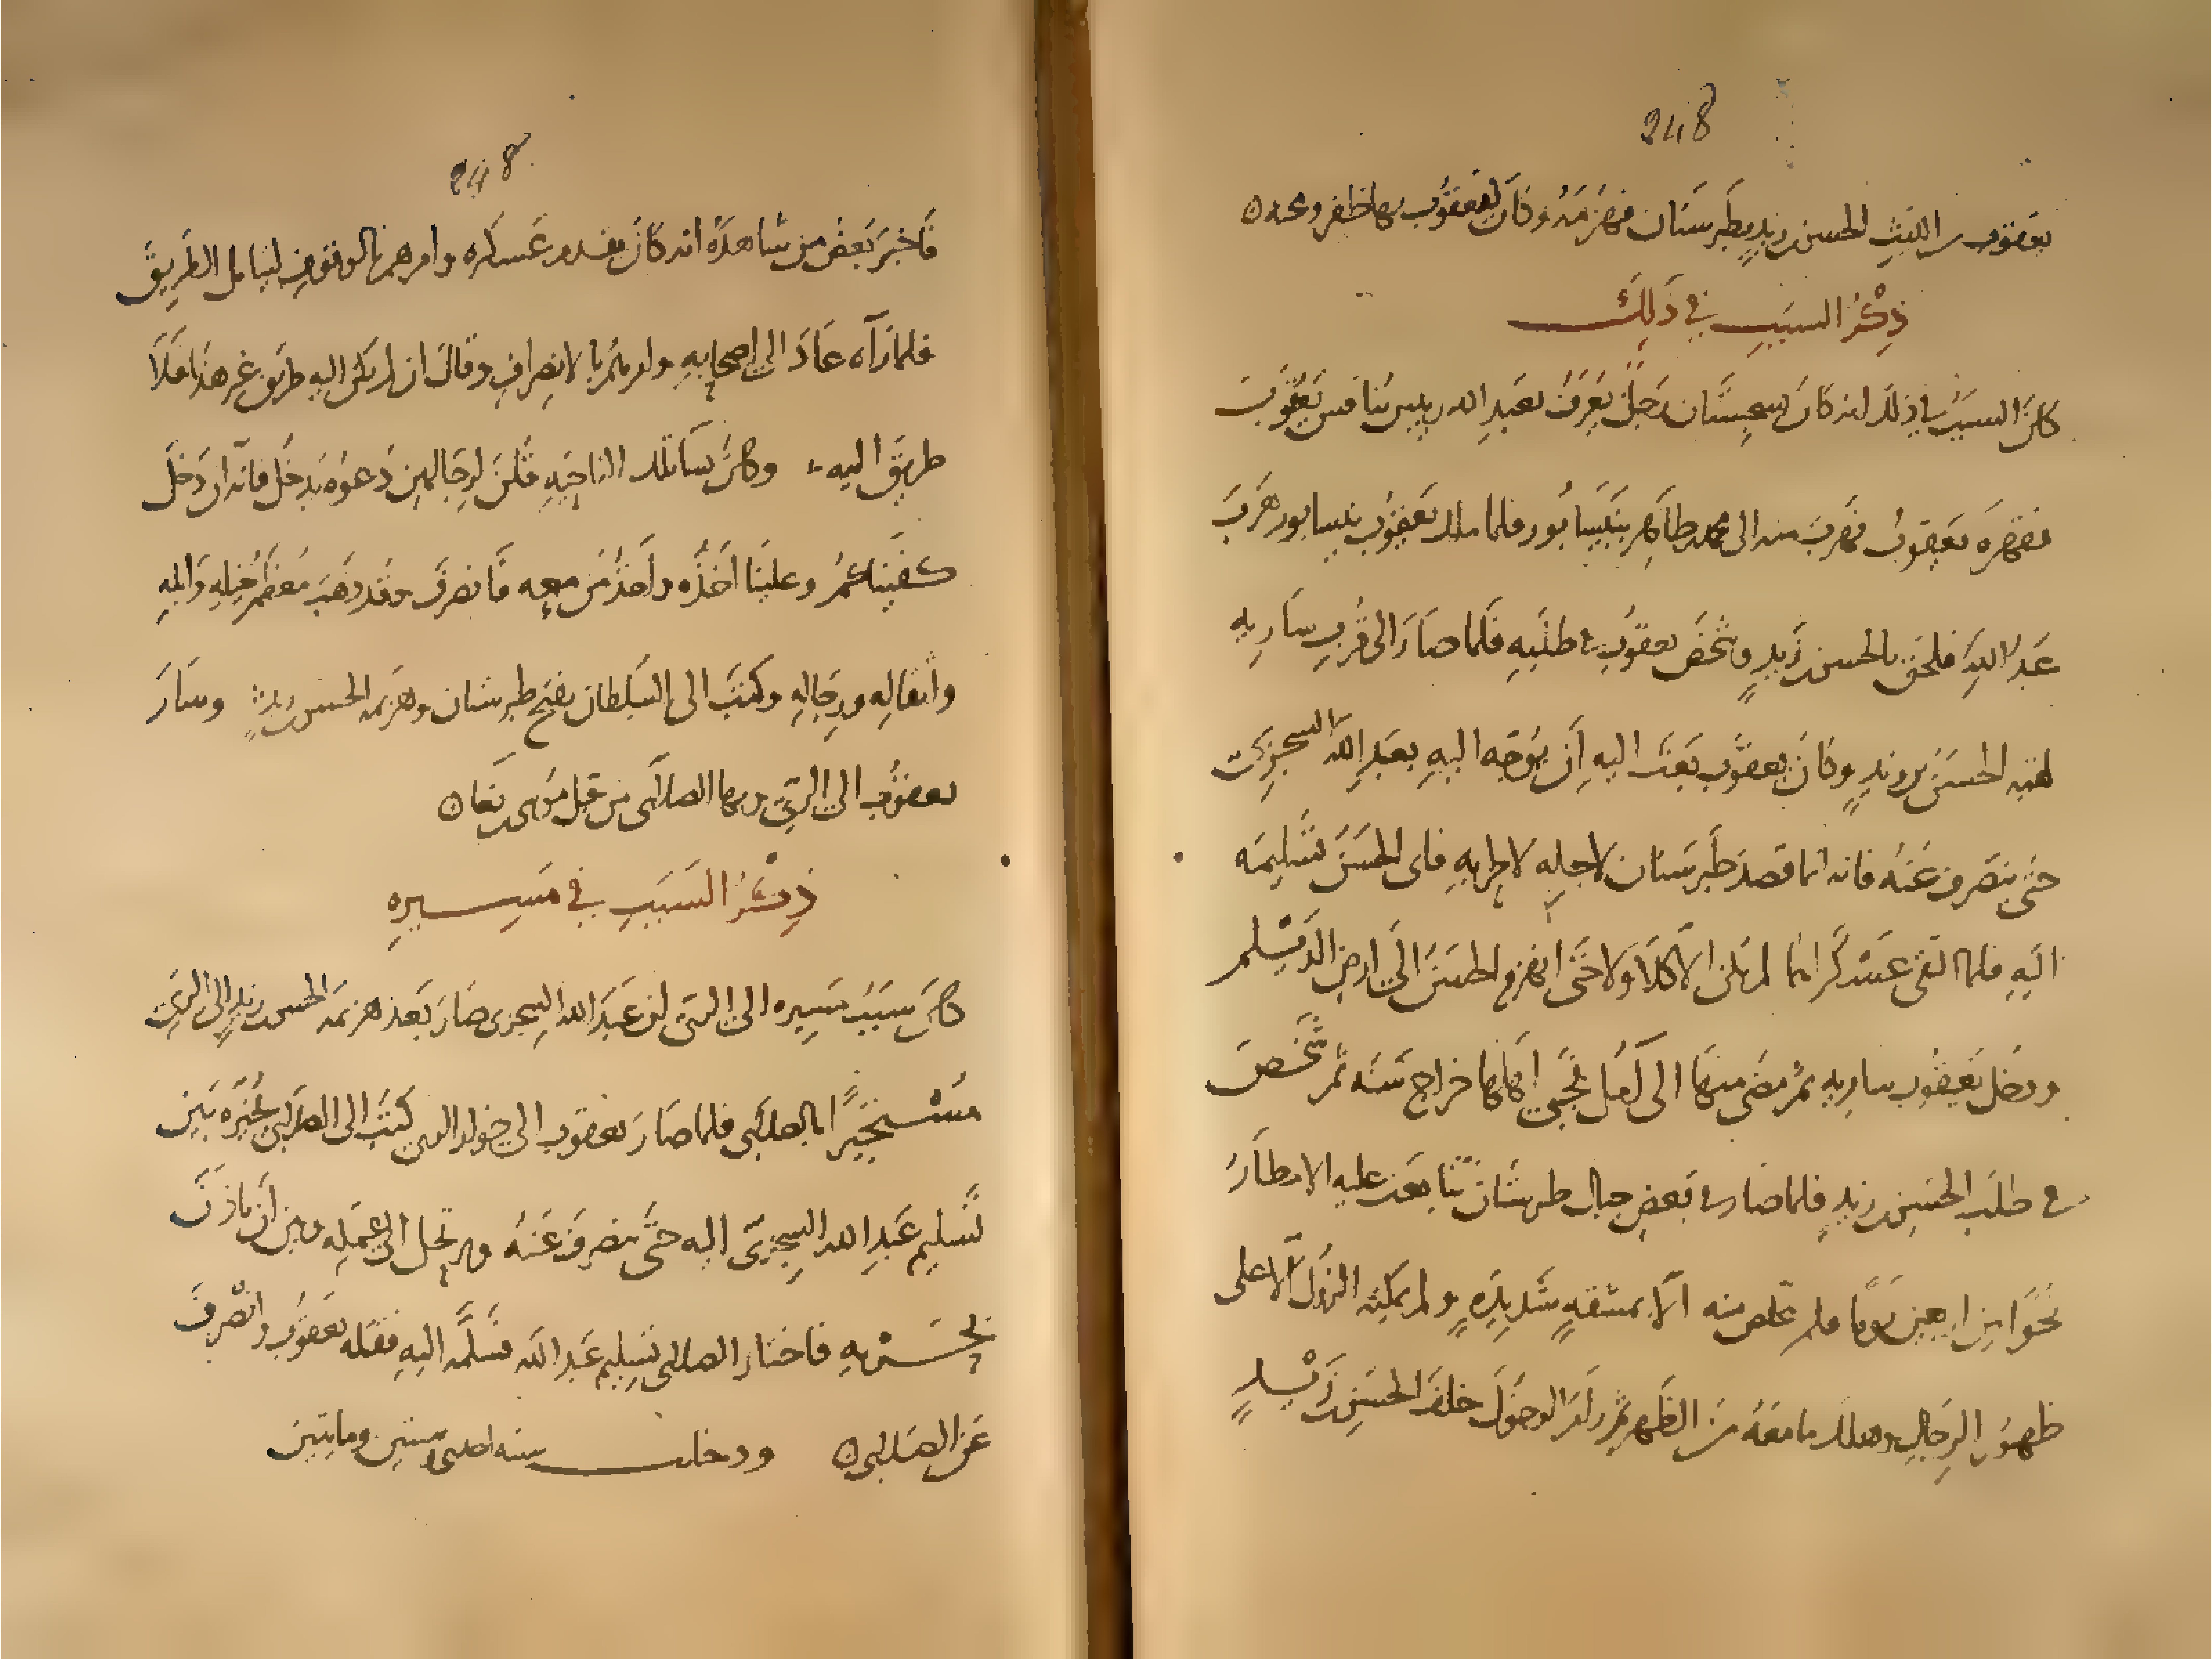 248
يعقوب بن الليث الحسن بن زيد بطبرستان فهزمه وكان ليعقوب بها ظفر ومحنة
ذِكْرُ السبَبِ في ذَلِكَ
كان السبب في ذلك انه كان بسجستان رجل يعرف بعبد الله ينافس يعقوب
فقهره يعقوب فهرب منه الى محمد بن طاهر بنيسابور فلما ملك يعقوب نيسابور هرب
عبد الله فلحق بالحسن بن زيد وشخص يعقوب في طلبه فلما صار الى قرب ساريه
لقيه الحسن بن زيد وكان يعقوب بعث اليه أن يوجه اليه بعبد الله السجزي
حتى ينصرف عنه فانه انما قصد طبرستان لاجله لا لحربه فابى الحسن تسليمه
اليه فلما التقى عسكراهما لم يكن الا كلا ولا حتى انهزم الحسن الى ارض الديلم
ودخل يعقوب ساريه ثم مضى منها الى آمل فجبى اهلها خراج سنه ثم شخص
في طلب الحسن بن زيد فلما صار في بعض جبال طبرستان تتابعت عليه الامطار
نحوًا من اربعين يومًا فلم يتخلص منه الا بمشقةٍ شديدةٍ ولم يمكنه النزول الا على
ظهور الرجال وهلك ما معه من الظهر ثم رام الوصول خلف الحسن بن زيدٍ
248
فأخبر بعض من شاهده انه كان يقدم عسكره وامرهم بالوقوف ليتامل الطريق
فلما رآه عاد الى اصحابه وامرهم بالانصراف وقال ان لم يكن اليه طريق غير هذا فلا
طريق اليه وكان نساء تلك الناحيه قلن لرجالهن دعوه يدخل فانه ان دخل
كفيناكم وعلينا اخذه واخذ من معه فانصرف وقد ذهب معظم خيله وابله
واثقاله ورجاله وكتب الى السلطان بفتح طبرستان وهزيمه الحسن بن زيد وسار
يعقوب الى الري وبها الصلابى من قبل موسى بن بغا
ذِكْرُ السَبَبِ في مَسِيرِهِ
كان سبب مسيره الى الري ان عبد الله السجزي صار بعد هزيمه الحسن بن زيد الى الري
مستجيرًا بالصلابى فلما صار يعقوب الى خوار الري كتب الى الصلابى يخيره بين
تسليم عبد الله السجزيّ اليه حتى ينصرف عنه ويرتحل الى عمله وبين أن ياذن
بحربه فاختار الصلابى تسليم عبد الله فسلمه اليه فقتله يعقوب وانصرف
عن الصلابى ودخلت سنه احدى وستين ومايتين